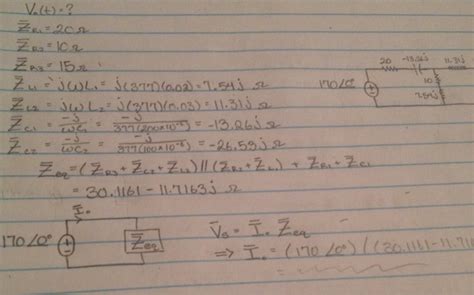 V₀(t) = ?
Z̄R1 = 20 Ω
Z̄R2 = 10 Ω
Z̄R3 = 15 Ω
Z̄L1 = jωL₁ = j(377)(0.02) = 7.54j Ω
Z̄L2 = jωL₂ = j(377)(0.03) = 11.31j Ω
Z̄C1 = -j/ωC₁ = -j/377(200×10⁻⁶) = -13.26j Ω
Z̄C2 = -j/ωC₂ = -j/377(100×10⁻⁶) = -26.53j Ω
Z̄eq = (Z̄R3 + Z̄C2 + Z̄L2) || (Z̄R2 + Z̄L1) + Z̄R1 + Z̄C1
= 30.1161 - 11.7163j Ω
20 -13.26j 11.31j
10
170∠0°
7.54j
Ī₀
170∠0° Z̄eq
V̄s = Ī₀ Z̄eq
⇒ Ī₀ = (170∠0°) / (30.1161 - 11.71